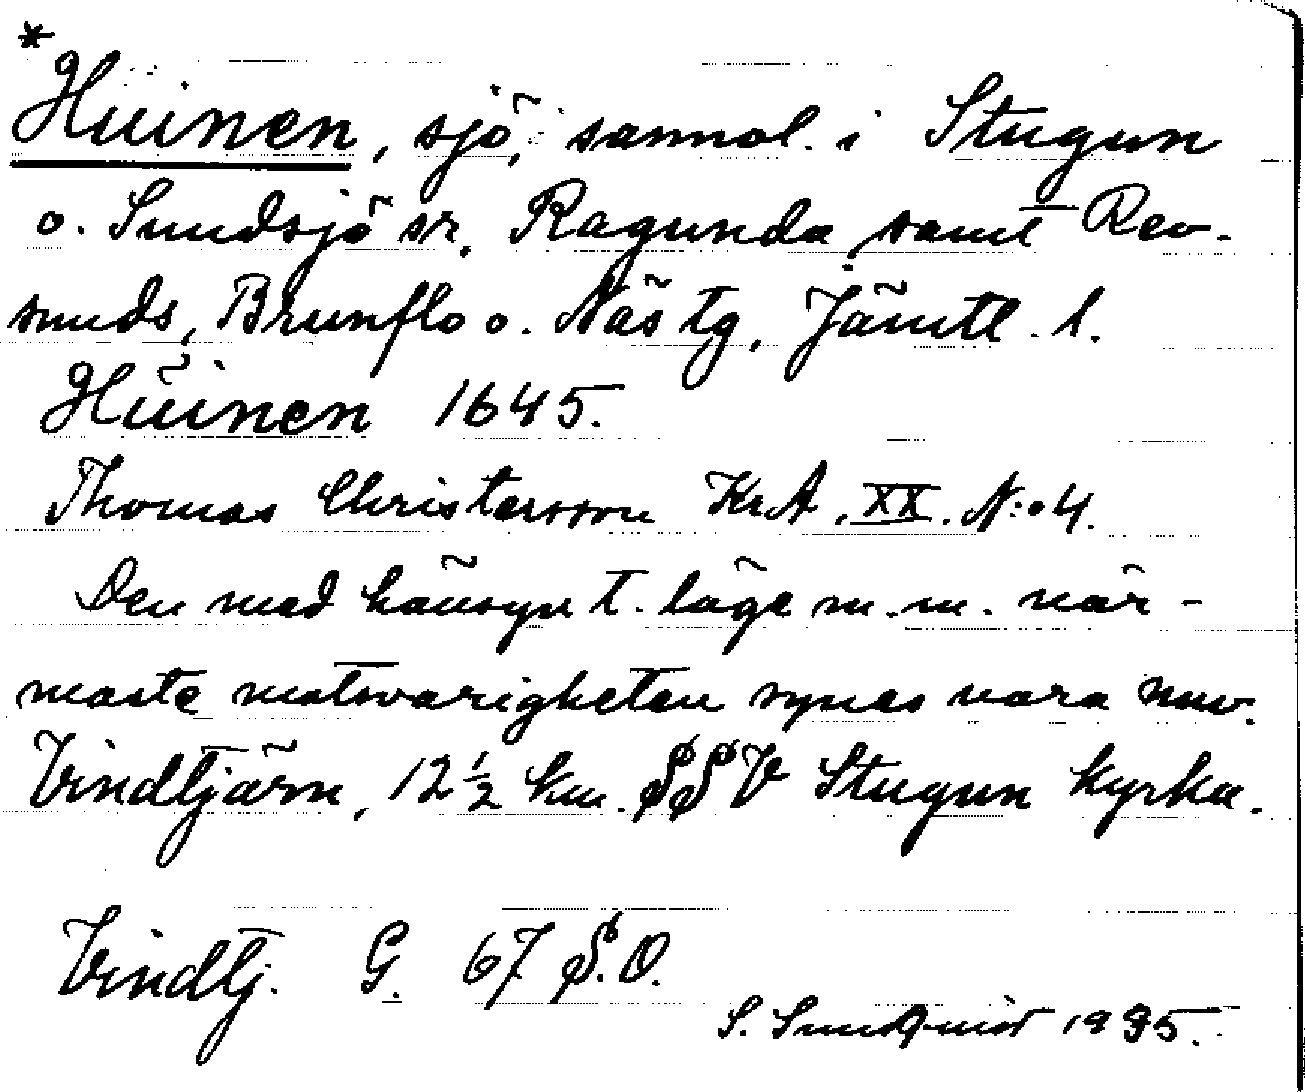 *Huinen, sjö, sannol. i Stugun
o. Sundsjö sn, Ragunda samt Rev-
sunds, Brunflo o. Näs tg, Jämtl. l.
Hüinen 1645.
Thomas Christersson KrA. XX. N:o 4.
Den med hänsyn t. läge m.m. när-
maste motsvarigheten synes vara nuv.
Vindtjärn, 12 ½ km. SSV Stugun kyrka.
Vindtj. G. 67 S.O.
S. Sundqvist 1935.